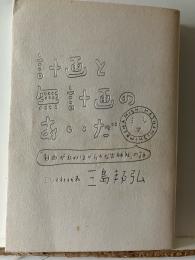 計画と
無計画の
あいだ
「自由が丘のほがらかな出版社」の話
三島邦弘